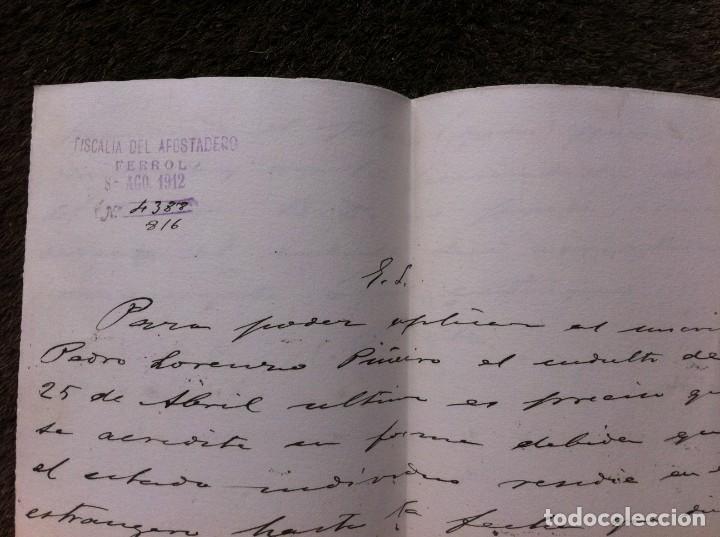 FISCALIA DEL APOSTADERO
FERROL
8- AGO. 1912
Nº 4388
816
E. S.
Para poder aplicar al inscri
Pedro Lorenzo Piñeiro el indulto de
25 de Abril ultimo es preciso q
se acredite en forma debida que
el citado individuo residie en e
estrangero hasta la fecha
todocoleccion.net